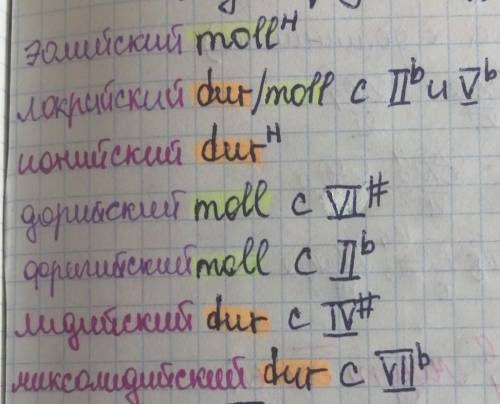 эолийский moll^H
локрийский dur/moll с II^b и V^b
ионийский dur^H
дорийский moll с VI^#
фригийский moll с II^b
лидийский dur с IV^#
миксолидийский dur с VII^b